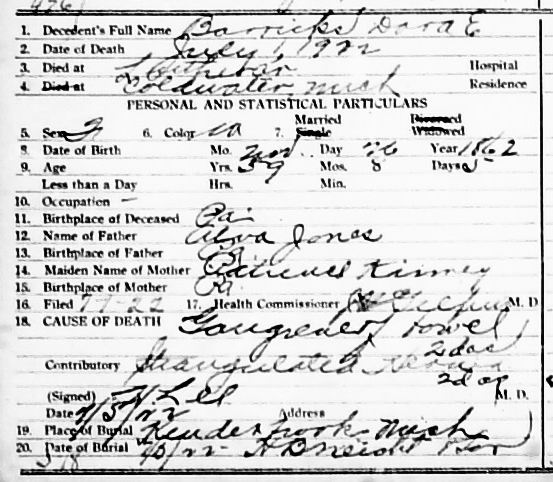 1. Decedent's Full Name Barricks Dora E
2. Date of Death July 1, 1922
3. Died at Hospital
4. Died at Coldwater Mich Residence
PERSONAL AND STATISTICAL PARTICULARS
Married Divorced
5. Sex F 6. Color W 7. Single Widowed
8. Date of Birth Mo. Nov Day 26 Year 1862
9. Age Yrs. 59 Mos. 8 Days 5
Less than a Day Hrs. Min.
10. Occupation –
11. Birthplace of Deceased Pa.
12. Name of Father Alva Jones
13. Birthplace of Father Pa
14. Maiden Name of Mother Kinney
15. Birthplace of Mother Pa
16. Filed 7-7-22 17. Health Commissioner M. D.
18. CAUSE OF DEATH Gangrene of bowel
2 das
Contributory Strangulated Hernia
2 das
(Signed) Lee M. D.
Date 7/5/22 Address
19. Place of Burial Kinderhook Mich
20. Date of Burial